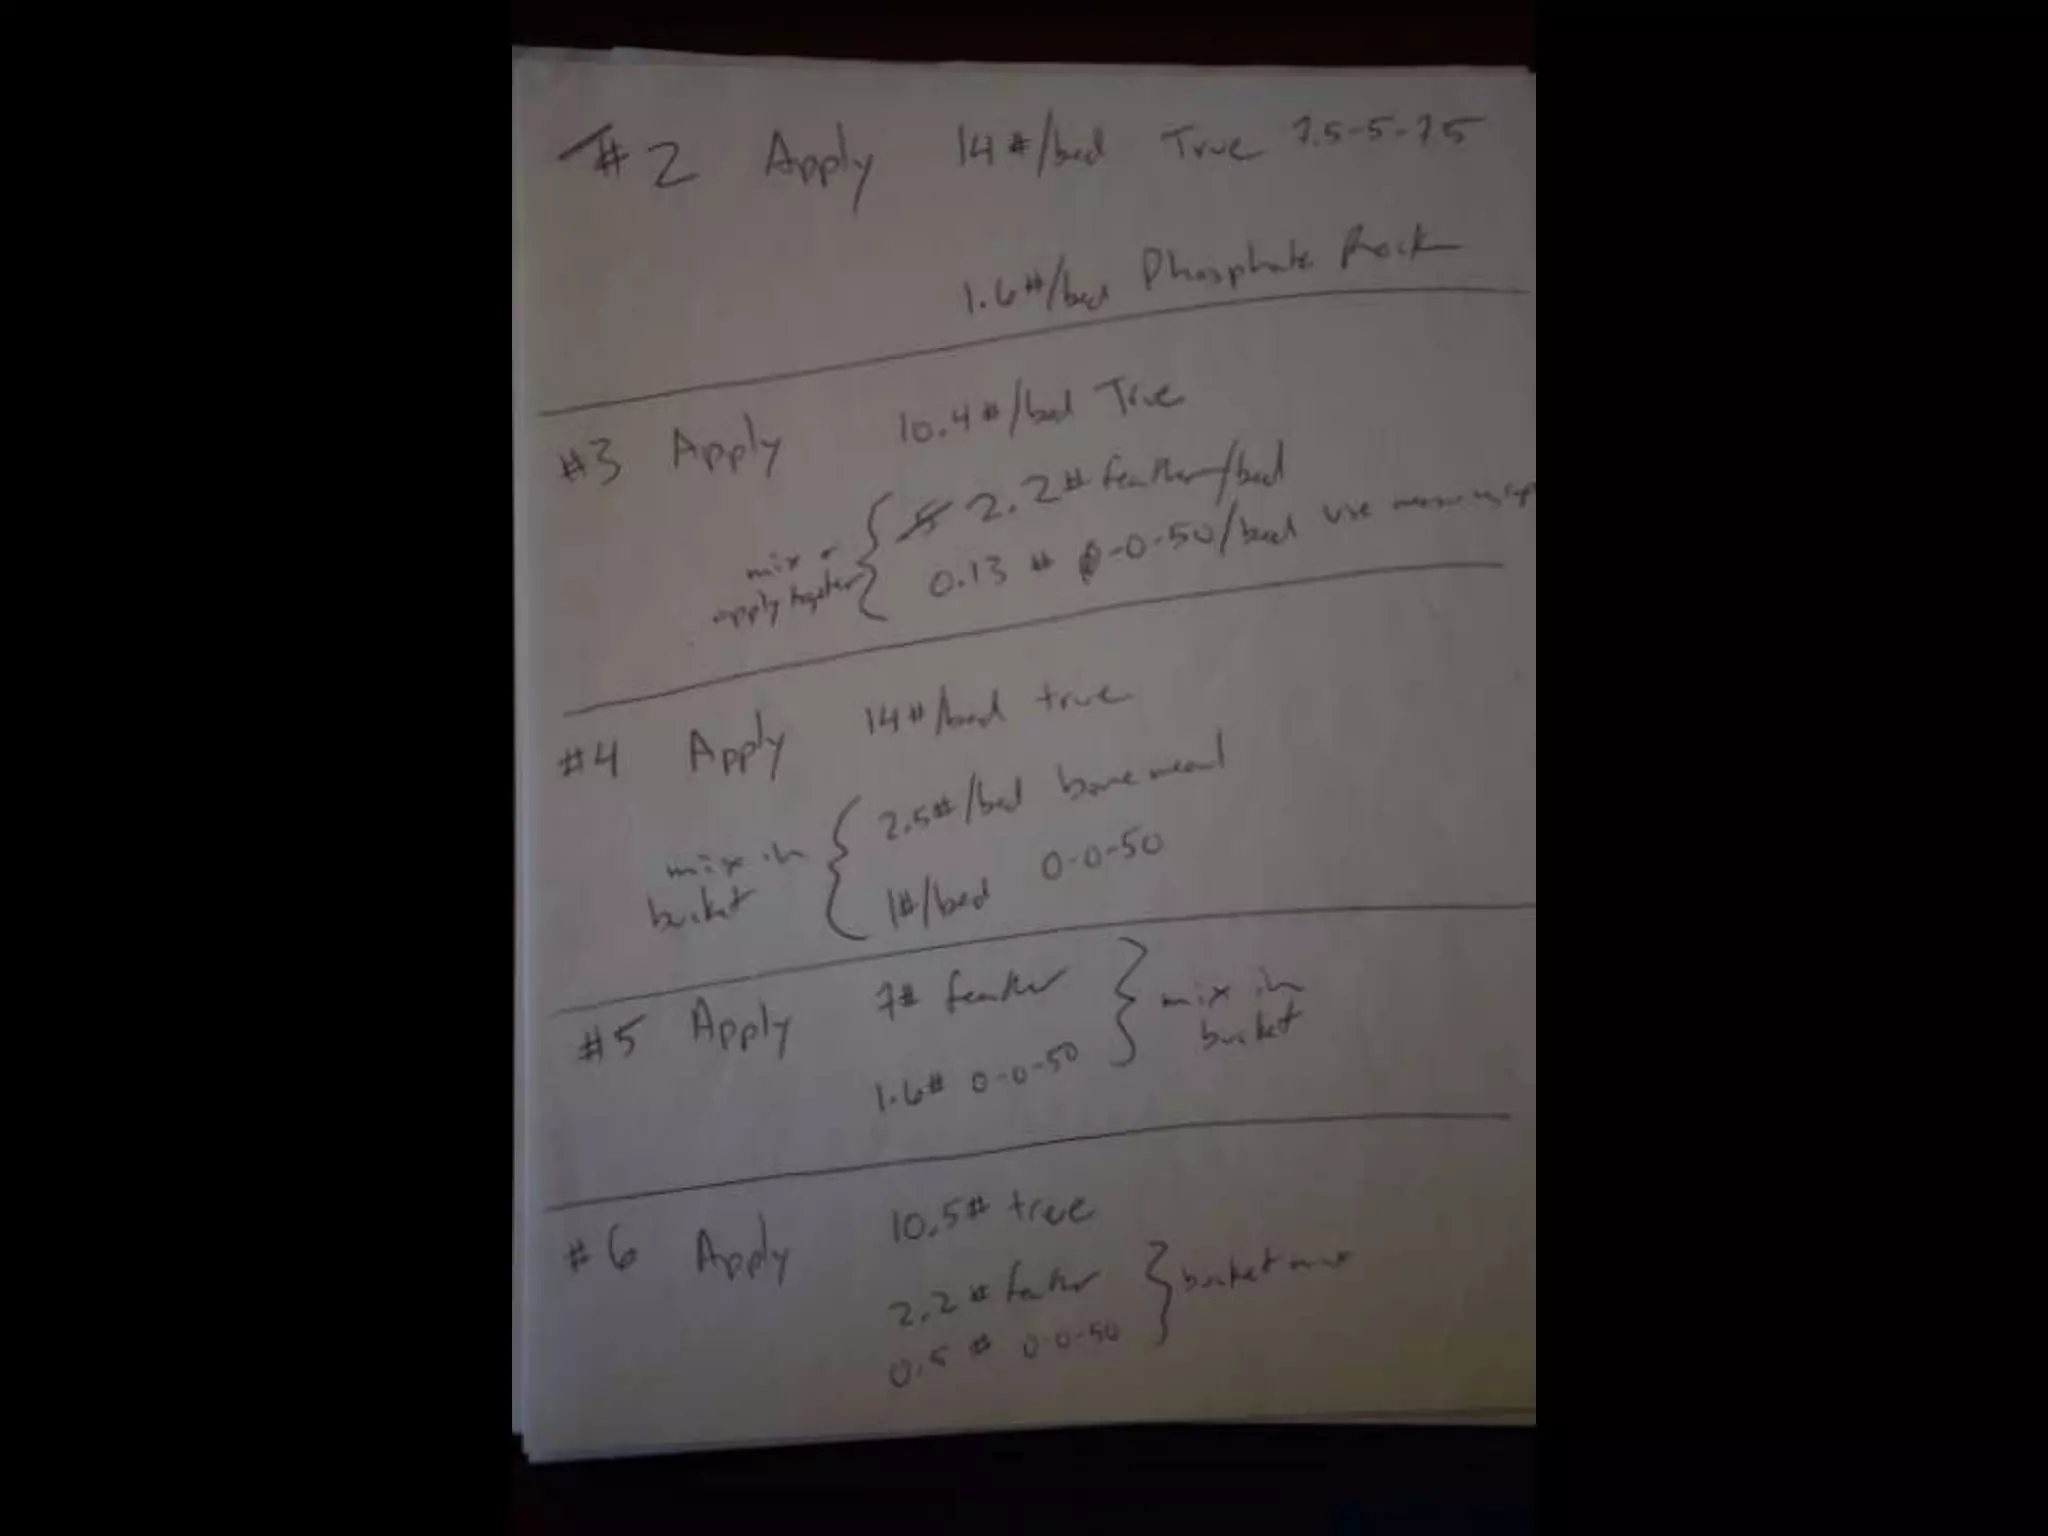 #2 Apply 14#/bed True 7.5-5-7.5
1.6#/bed Phosphate Rock
#3 Apply 10.4#/bed True
2.2# feather/bed
mix + apply together
0.13 # 0-0-50/bed use measuring
#4 Apply 14#/bed true
2.5#/bed bone meal
mix in bucket
1#/bed 0-0-50
#5 Apply 7# feather
mix in bucket
1.6# 0-0-50
#6 Apply 10.5# true
2.2# feather
bucket mix
0.5 # 0-0-50